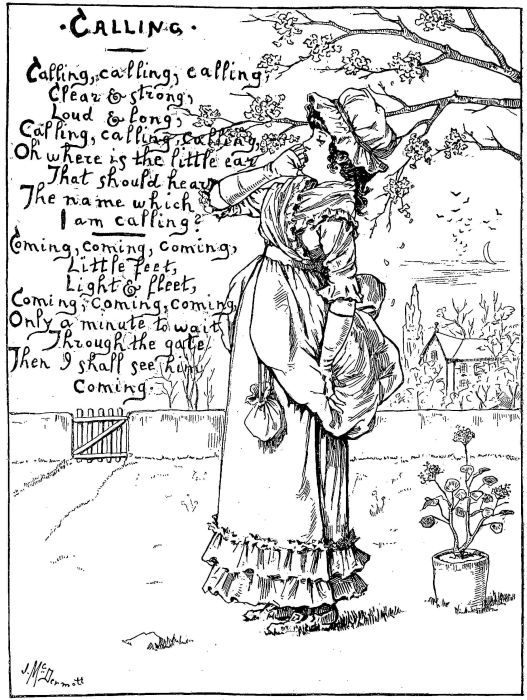 ·CALLING·
Calling, calling, calling,
Clear & strong,
Loud & long,
Calling, calling, calling,
Oh where is the little ear
That should hear
The name which
I am calling?
Coming, coming, coming,
Little feet,
Light & fleet,
Coming, coming, coming,
Only a minute to wait
Through the gate
Then I shall see him
Coming.
J. McDermott